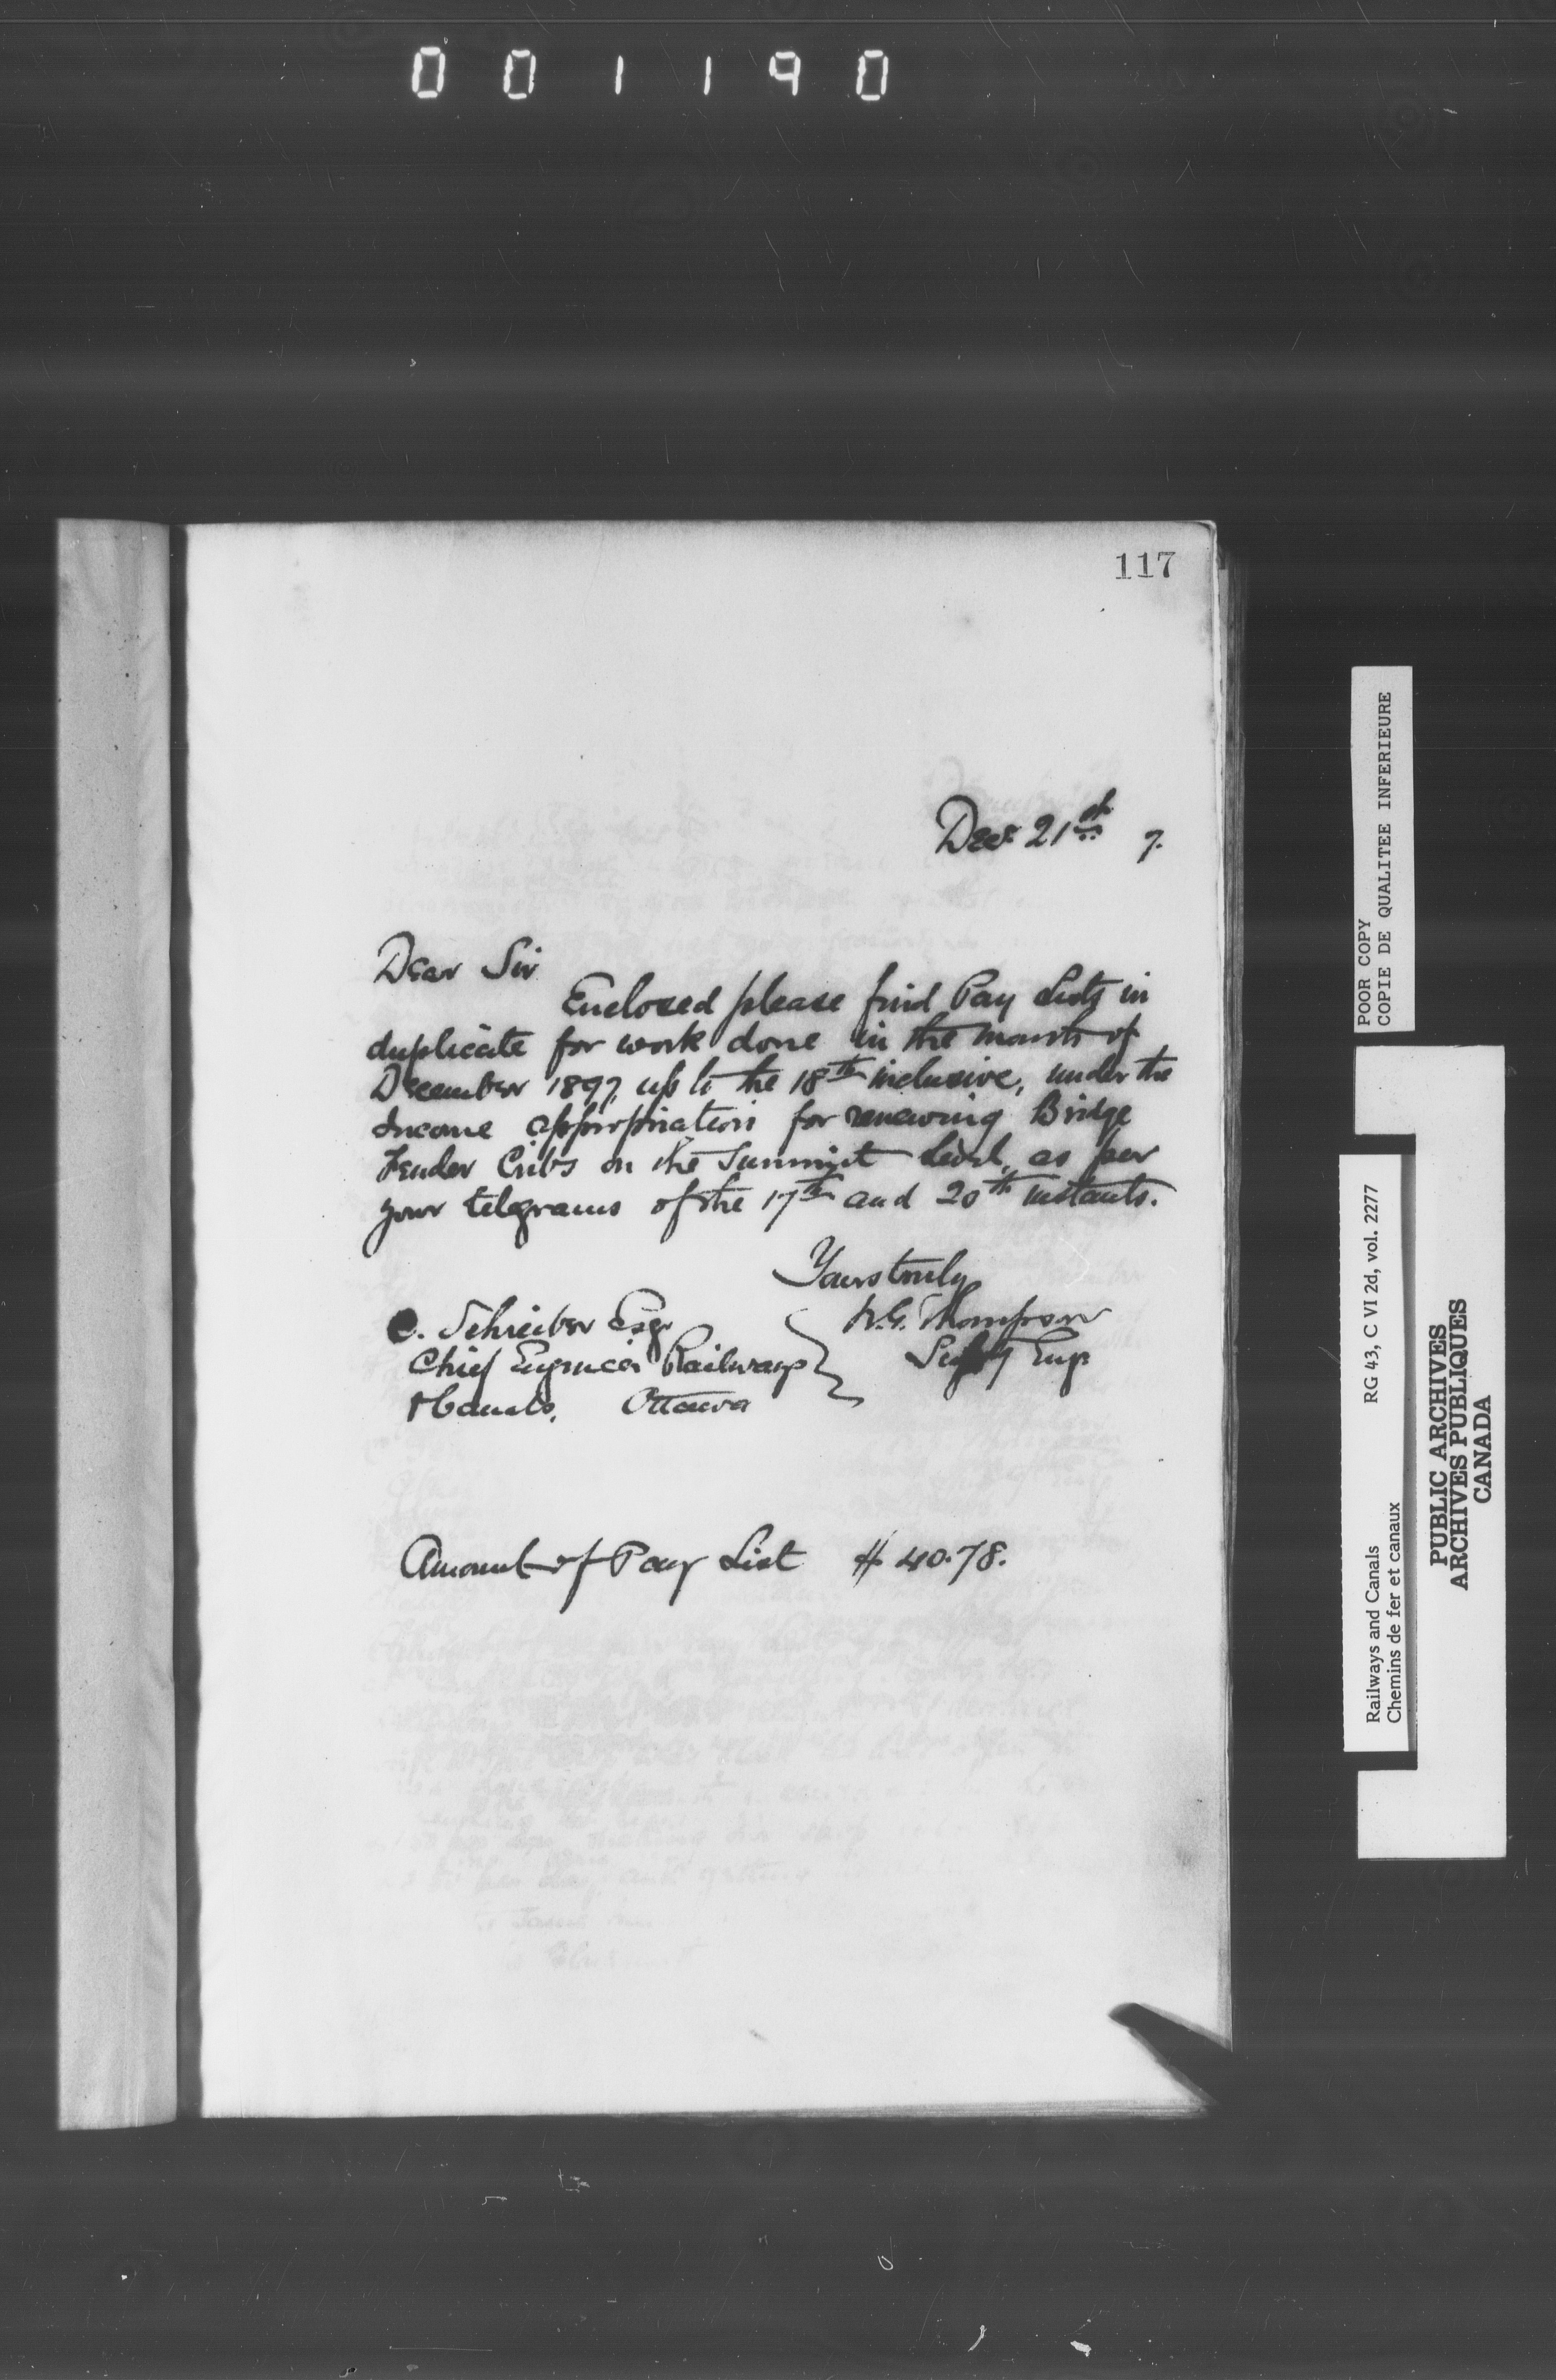 001190
117
Decr. 21st 7.
Dear Sir
Enclosed please find Pay Lists in
duplicate for work done in the month of
December 1897, up to the 18th inclusive, under the
Income appropriation for renewing Bridge
Fender Cribs on the Summit level, as per
your telegrams of the 17th and 20th instants.
Yours truly
W.G. Thompson
Supt Engr
C. Schreiber Esqr
Chief Engineer Railways
& Canals, Ottawa
Amount of Pay List $ 40.78.
POOR COPY
COPIE DE QUALITEE INFERIEURE
Railways and Canals RG 43, C VI 2d, vol. 2277
Chemins de fer et canaux
PUBLIC ARCHIVES
ARCHIVES PUBLIQUES
CANADA